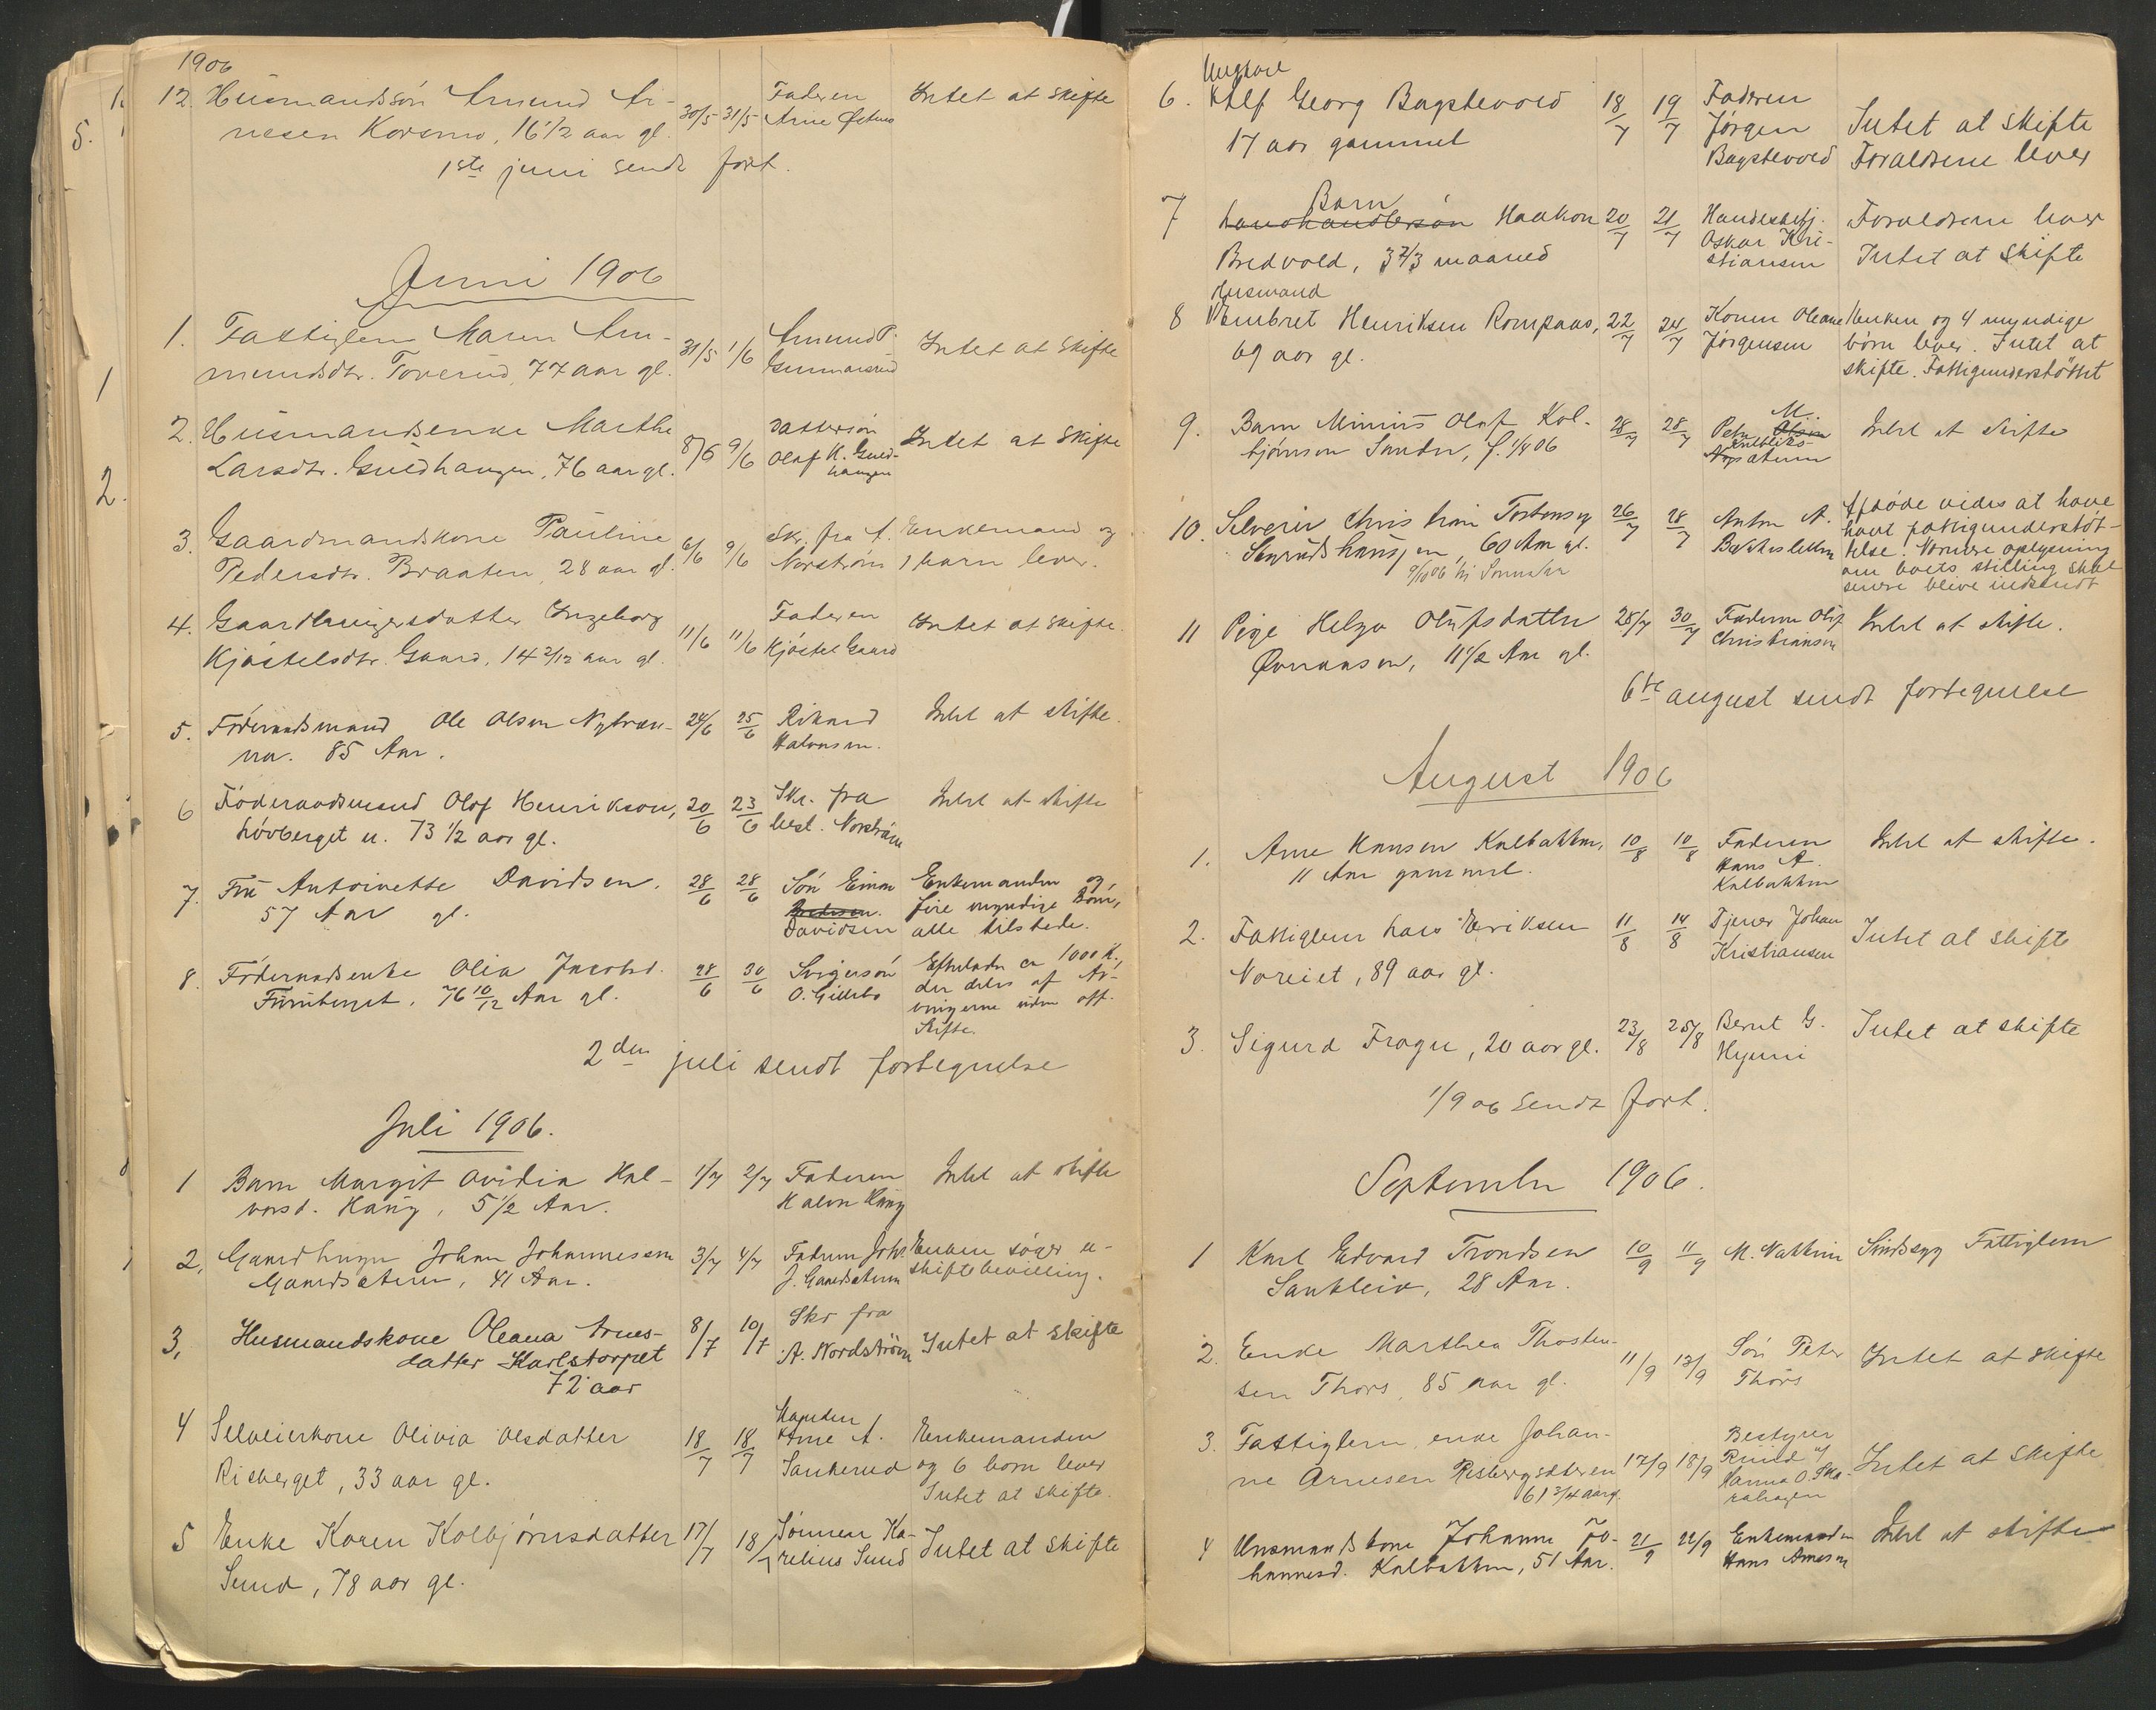 1906
12. Husmandssøn Amund Ar- 30/5 31/5 Faderen Intet at skifte
nesen Korsmo, 16 1/2 aar gl. Arne
1ste juni sendt fort.
Juni 1906
1. Fattiglem Maren Am- 31/5 1/6 Amund P. Intet at skifte
mundsdtr. Toverud, 77 aar gl. Gunnarsrud
2. Husmandsenke Marthe 8/6 9/6 Dattersøn Intet at skifte
Larsdtr. Guldhaugen, 76 aar gl. Olaf K. Guld-
haugen
3. Gaardmandskone Pauline 6/6 9/6 Skr. fra A. Enkemand og
Pedersdtr. Braaten, 28 aar gl. Norström 1 barn lever.
4. Gaardbrugersdatter Ingeborg 11/6 11/6 Faderen Intet at skifte.
Kjøstelsdtr. Gaard, 14 2/12 aar gl. Kjøstel Gaard
5. Føderaadsmand Ole Olsen Nybraa- 24/6 25/6 Rikard Intet at skifte.
85 Aar. Halvorsen.
6 Föderaadsmand Olof Henrikson, 20/6 23/6 Skr. fra Intet at skifte
Lövberget u. 73 1/2 aar gl. lensm. Norström
7. Fru Antoinette Davidsen. 28/6 28/6 Søn Einar Enkemanden og
57 Aar gl. Davidsen fire myndige Børn,
alle tilstede.
8. Föderaadsenke Olia Jacobsd. 28/6 30/6 Svigersøn Efterlader ca 1000 K.,
Furuberget. 76 10/12 Aar gl. O. Gillebo der deles af Ar-
vingerne uden off.
Skifte.
2den juli sendt fortegnelse
Juli 1906.
1 Barn Margit Ovidia Hal- 1/7 2/7 Faderen Intet at skifte
vorsd. Haug, 5 1/2 Aar. Halvor Haug
2, Gaardbruger Johan Johannesen 3/7 4/7 Faderen Johs Enken søger u-
Gaardsæteren, 41 Aar. J. Gaardsæteren skiftebevilling.
3, Husmandskone Oleana Arnes- 8/7 10/7 Skr fra
datter Karlstorpet A. Nordström Intet at skifte
72 aar
4 Selveierkone Olivia Olsdatter 18/7 18/7 Manden Enkemanden
Risberget, 33 aar gl. Arne A. og 6 born lever
Sankerud Intet at skifte.
5 Enke Karen Kolbjørnsdatter 17/7 18/7 Sønnen Ka- Intet at skifte
Sund, 78 aar gl. relius Sund
Ungkarl
6. Alf Georg Bagstevold 18/7 19/7 Faderen Intet at skifte
17 aar gammel Jørgen Foraldrene lever
Bagstevold
Barn
7 Landhandlersøn Haakon 20/7 21/7 Handelsbetj. Foraldrene lever
Bredvold, 3 2/3 maaned Oskar Kri- Intet at skifte
stiansen
Husmand
8 Embret Henriksen Rompaas, 22/7 24/7 Konen Oleane Enken og 4 myndige
69 aar gl. Jørgensen børn lever. Intet at
skifte. Fattigunderstöttet
9. Barn Minius Olaf Kol- 28/7 28/7 Peder M Intet at skifte
bjørnsen Sander, f. 1/4 06
10. Selveier Christian Torstensen 26/7 28/7 Anton A. Afdøde vides at have
Skyrudshaugen, 60 Aar gl. Bakkesletten havt fattigunderstöt-
9/10 06 telse. Nærmere oplysning
om boets stilling skal
senere blive indsendt
11 Pige Helga Olufsdatter 28/7 30/7 Faderen Oluf Intet at skifte.
11 1/2 Aar gl. Christiansen
6te august sendt fortegnelse
August 1906
1. Arne Hansen Kalbakken, 10/8 10/8 Faderen Intet at skifte.
11 Aar gammel. Hans A.
Kalbakken
2. Fattiglem Lars Eriksen 11/8 14/8 Tjener Johan Intet at skifte
Noreiet, 89 aar gl. Kristiansen
3. Sigurd Fragu, 20 aar gl. 23/8 25/8 Bernt G. Intet at skifte
1/9 06 sendt fort.
September 1906.
1 Karl Edvard Trondsen 10/9 11/9 M. Nakkim Sindssyg Fattiglem
28 Aar.
2. Enke Marthea Thosten- 11/9 13/9 Søn Peter Intet at skifte
sen Thors, 85 aar gl. Thors
3. Fattiglem, enke Johan- 17/9 18/9 Bestyrer Intet at skifte
ne Arnesen Risbergsæteren
61 3/4 aar gl.
4 Husmandskone Johanne Jo- 21/9 22/9 Enkemanden Intet at skifte
hannesd. Kalbakken, 51 Aar. Hans Arnesen